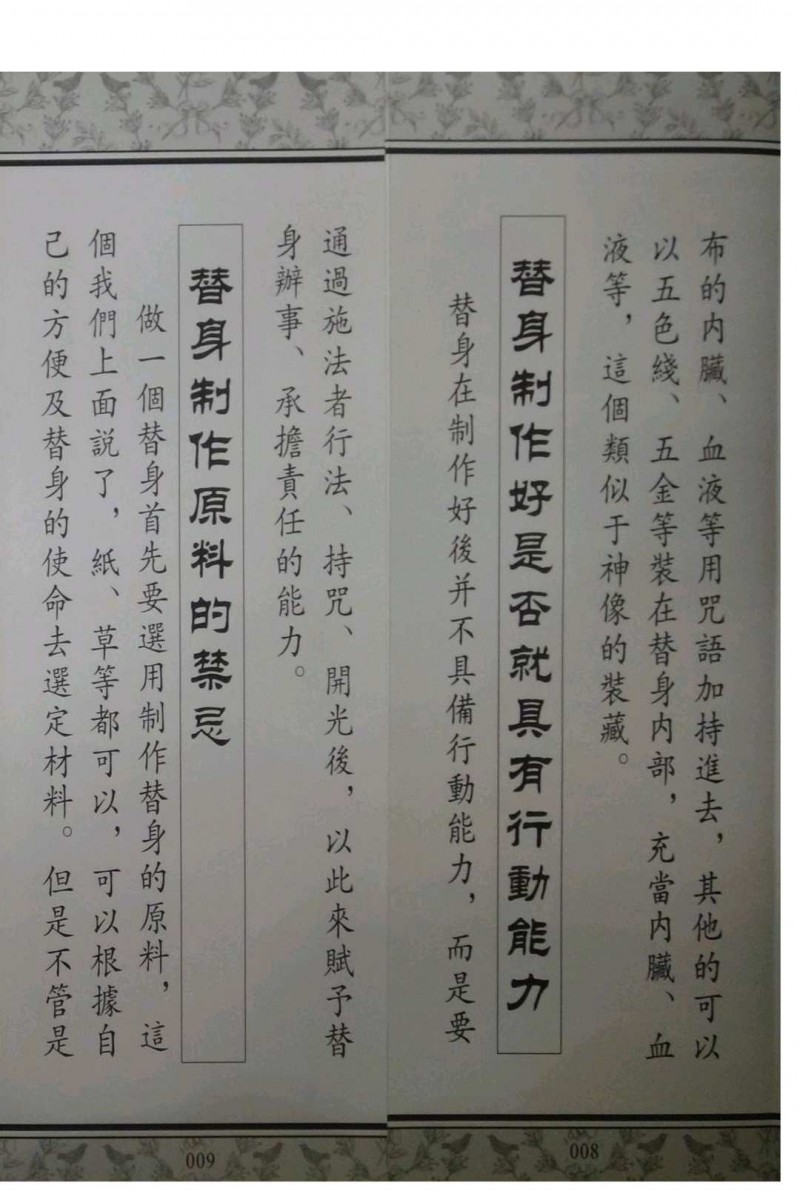 布的内臟、血液等用咒語加持進去，其他的可以
以五色綫、五金等裝在替身内部，充當内臟、血
液等，這個類似于神像的裝藏。
替身制作好是否就具有行動能力
替身在制作好後并不具備行動能力，而是要
008
通過施法者行法、持咒、開光後，以此來賦予替
身辦事、承擔責任的能力。
替身制作原料的禁忌
做一個替身首先要選用制作替身的原料，這
個我們上面説了，紙、草等都可以，可以根據自
己的方便及替身的使命去選定材料。但是不管是
009